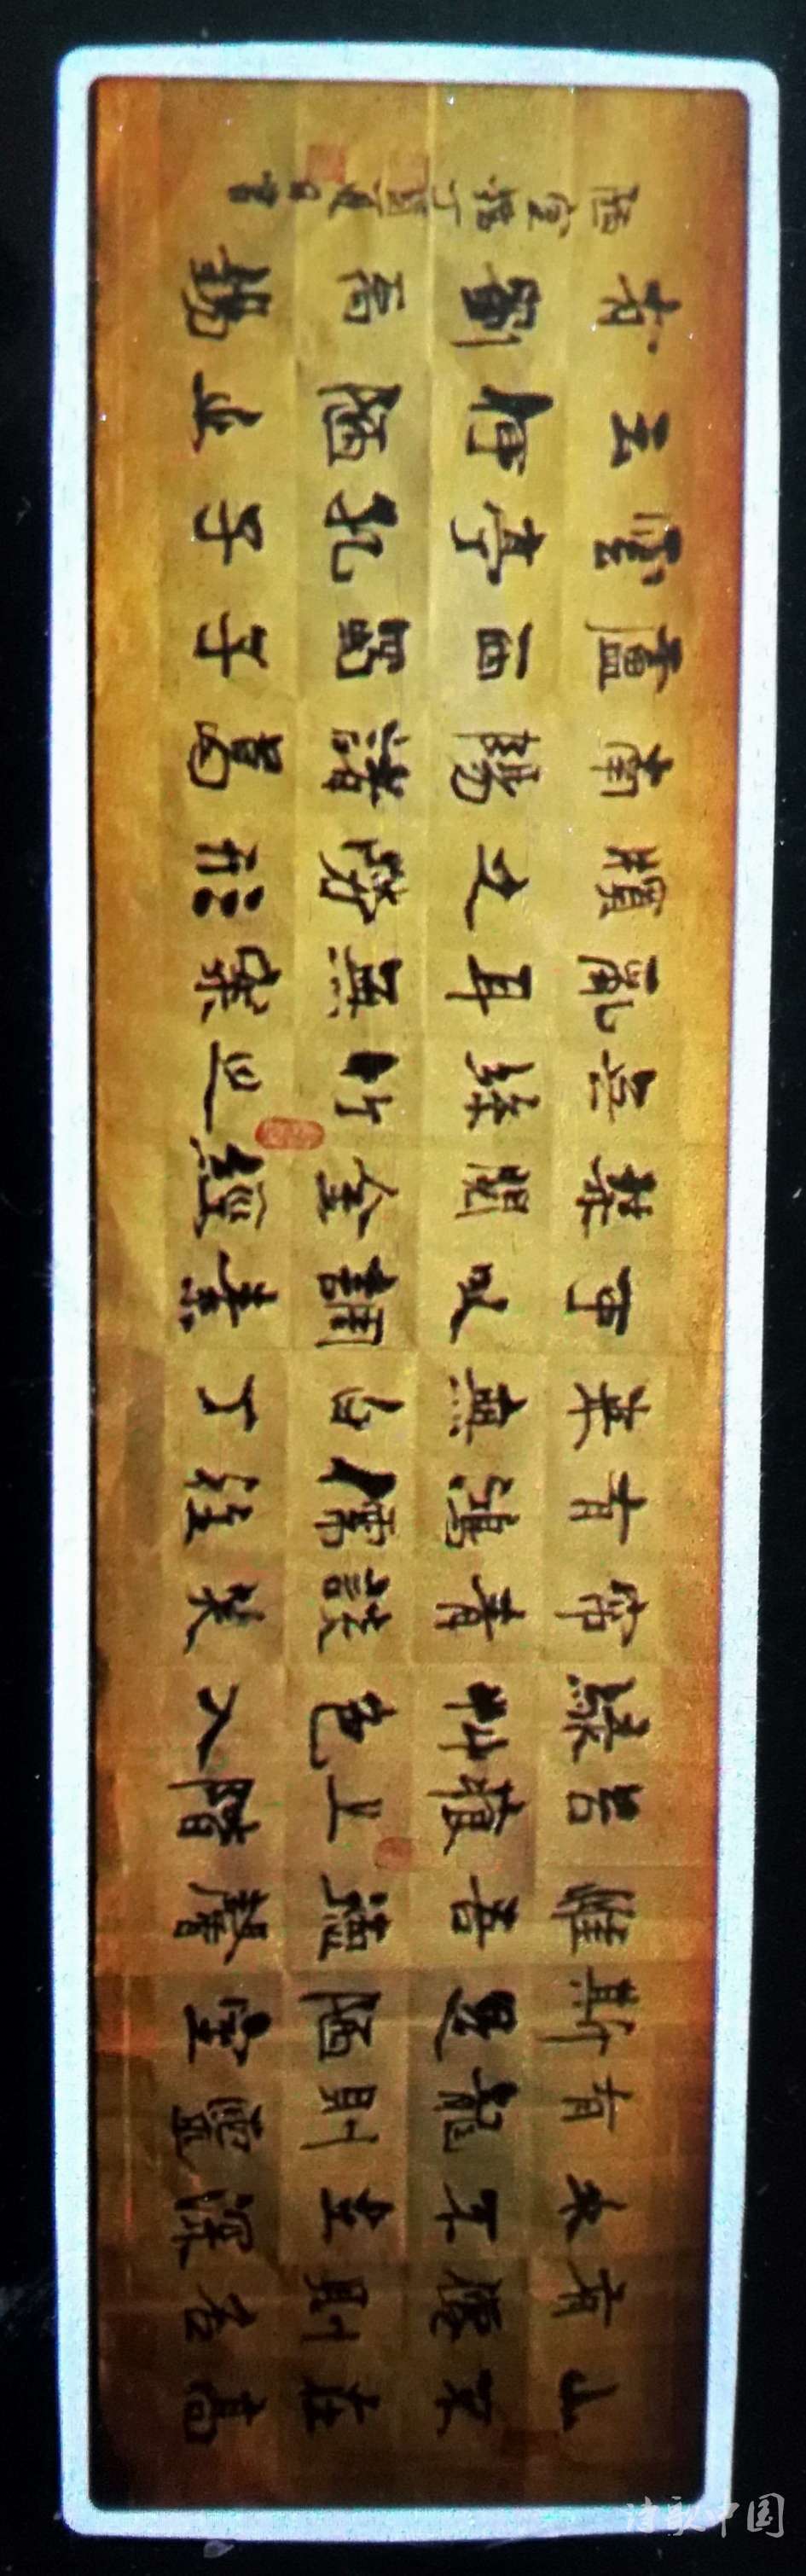 山不在高
有僊則名
水不在深
有龍則靈
斯是陋室
惟吾德馨
苔痕上階
綠艸色入
帘青談笑
有鴻儒往
來無白丁
可以調素
琴閱金經
無絲竹之
亂耳無案
牘之勞形
南陽諸葛
廬西蜀子
雲亭孔子
云何陋之
有劉禹錫
陋室銘丁酉夏月書
诗歌中国